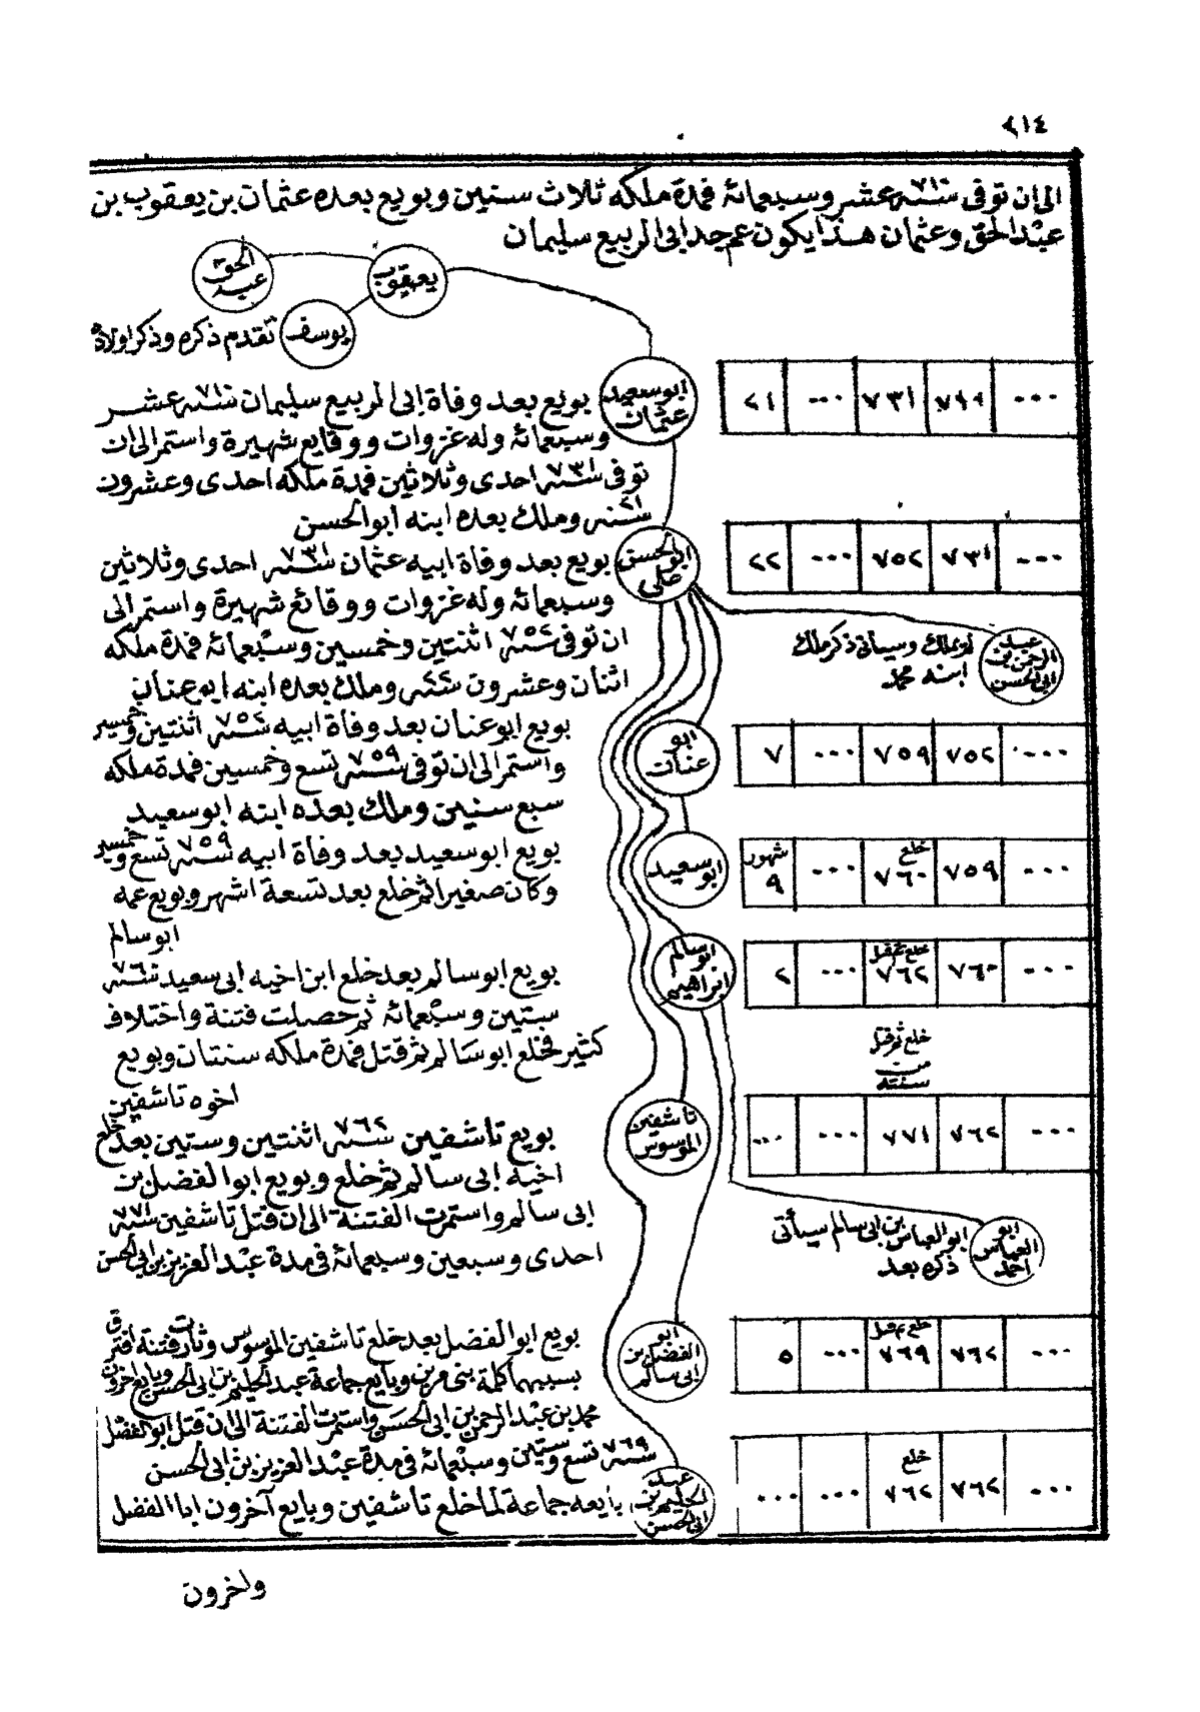 ٢١٤
الى ان توفى سنة ٧١٠ عشر وسبعمائة فمدة ملكه ثلاث سنين وبويع بعده عثمان بن يعقوب بن
عبد الحق وعثمان هذا يكون عم جد ابى الربيع سليمان
عبد الحق
يعقوب
يوسف
تقدم ذكره وذكر اولاده
ابو سعيد عثمان
بويع بعد وفاة ابى الربيع سليمان سنة ٧١٠ عشر
وسبعمائة وله غزوات ووقايع شهيرة واستمر الى ان
توفى سنة ٧٣١ احدى وثلاثين فمدة ملكه احدى وعشرون
سنة ٢١ وملك بعده ابنه ابو الحسن
... ٧١٠ ٧٣١ ... ٢١
ابو الحسن على
بويع بعد وفاة ابيه عثمان سنة ٧٣١ احدى وثلاثين
وسبعمائة وله غزوات ووقائع شهيرة واستمر الى
ان توفى سنة ٧٥٢ اثنتين وخمسين وسبعمائة فمدة ملكه
اثنان وعشرون سنة وملك بعده ابنه ابو عنان
... ٧٣١ ٧٥٢ ... ٢٢
عبد الرحمن بن ابى الحسن
لم يملك وسيأتى ذكر ملك
ابنه محمد
ابو عنان
بويع ابو عنان بعد وفاة ابيه سنة ٧٥٢ اثنتين وخمسين
واستمر الى ان توفى سنة ٧٥٩ تسع وخمسين فمدة ملكه
سبع سنين وملك بعده ابنه ابو سعيد
... ٧٥٢ ٧٥٩ ... ٧
ابو سعيد
بويع ابو سعيد بعد وفاة ابيه سنة ٧٥٩ تسع وخمسين
وكان صغيرا ثم خلع بعد تسعة اشهر وبويع عمه
ابو سالم
... ٧٥٩ خلع ٧٦٠ ... شهور ٩
ابو سالم ابراهيم
بويع ابو سالم بعد خلع ابن اخيه ابى سعيد سنة ٧٦٠
ستين وسبعمائة ثم حصلت فتنة واختلاف
كثير فخلع ابو سالم ثم قتل فمدة ملكه سنتان وبويع
اخوه تاشفين
... ٧٦٠ خلع ثم قتل ٧٦٢ ... ٢
تاشفين الموسوس
بويع تاشفين سنة ٧٦٢ اثنتين وستين بعد خلع
اخيه ابى سالم ثم خلع وبويع ابو الفضل بن
ابى سالم واستمرت الفتنة الى ان قتل تاشفين سنة ٧٧١
احدى وسبعين وسبعمائة فى مدة عبد العزيز بن ابى الحسن
خلع ثم قتل
من
سنته
... ٧٦٢ ٧٧١ ... ...
ابو العباس احمد
ابو العباس بن ابى سالم سيأتى
ذكره بعد
ابو الفضل بن ابى سالم
بويع ابو الفضل بعد خلع تاشفين الموسوس وثارت فتنة افترق
بسببها كلمة بنى مرين وبايع جماعة عبد الحليم بن ابى الحسن وبايع آخرون
محمد بن عبد الرحمن بن ابى الحسن واستمرت الفتنة الى ان قتل ابو الفضل
سنة ٧٦٩ تسع وستين وسبعمائة فى مدة عبد العزيز بن ابى الحسن
... ٧٦٢ خلع ثم قتل ٧٦٩ ... ٥
عبد الحليم بن ابى الحسن
بايعه جماعة لما خلع تاشفين وبايع آخرون ابا الفضل
... ٧٦٢ خلع ٧٦٢ ... ...
واخرون